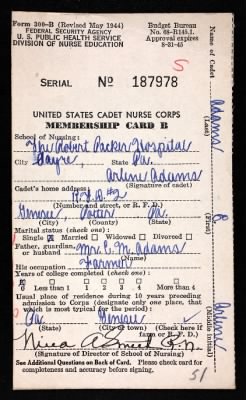 Form 300-B (Revised May 1944)
FEDERAL SECURITY AGENCY
U. S. PUBLIC HEALTH SERVICE
DIVISION OF NURSE EDUCATION
Budget Bureau
No. 68-R145.1.
Approval expires
8-31-45
S
SERIAL No 187978
UNITED STATES CADET NURSE CORPS
MEMBERSHIP CARD B
School of Nursing:
The Robert Packer Hospital
City Sayre, State Pa.
Arlene Adams
(Signature of cadet)
Cadet's home address:
R.F.D. #2
(Number and street, or R. F. D.)
Genesee, Potter Pa.
(City) (County) (State)
Marital status (check one):
Single Married Widowed Divorced
Father, guardian, or husband Mr. E. M. Adams
His occupation Farmer
Years of college completed (check one):
0 Less than 1 1 2 3 4 More than 4
Usual place of residence during 10 years preceding
admission to Corps (designate only one place, that
which is most typical for the period):
Pa. Genesee
(State) (County) (City or town) (Check here if farm or R. F. D.)
(Signature of Director of School of Nursing)
See Additional Questions on Back of Card. Please check card for
completeness and accuracy before signing.
51
Name of Cadet
Adams
(Last)
(First)
Arlene
(Middle initial)